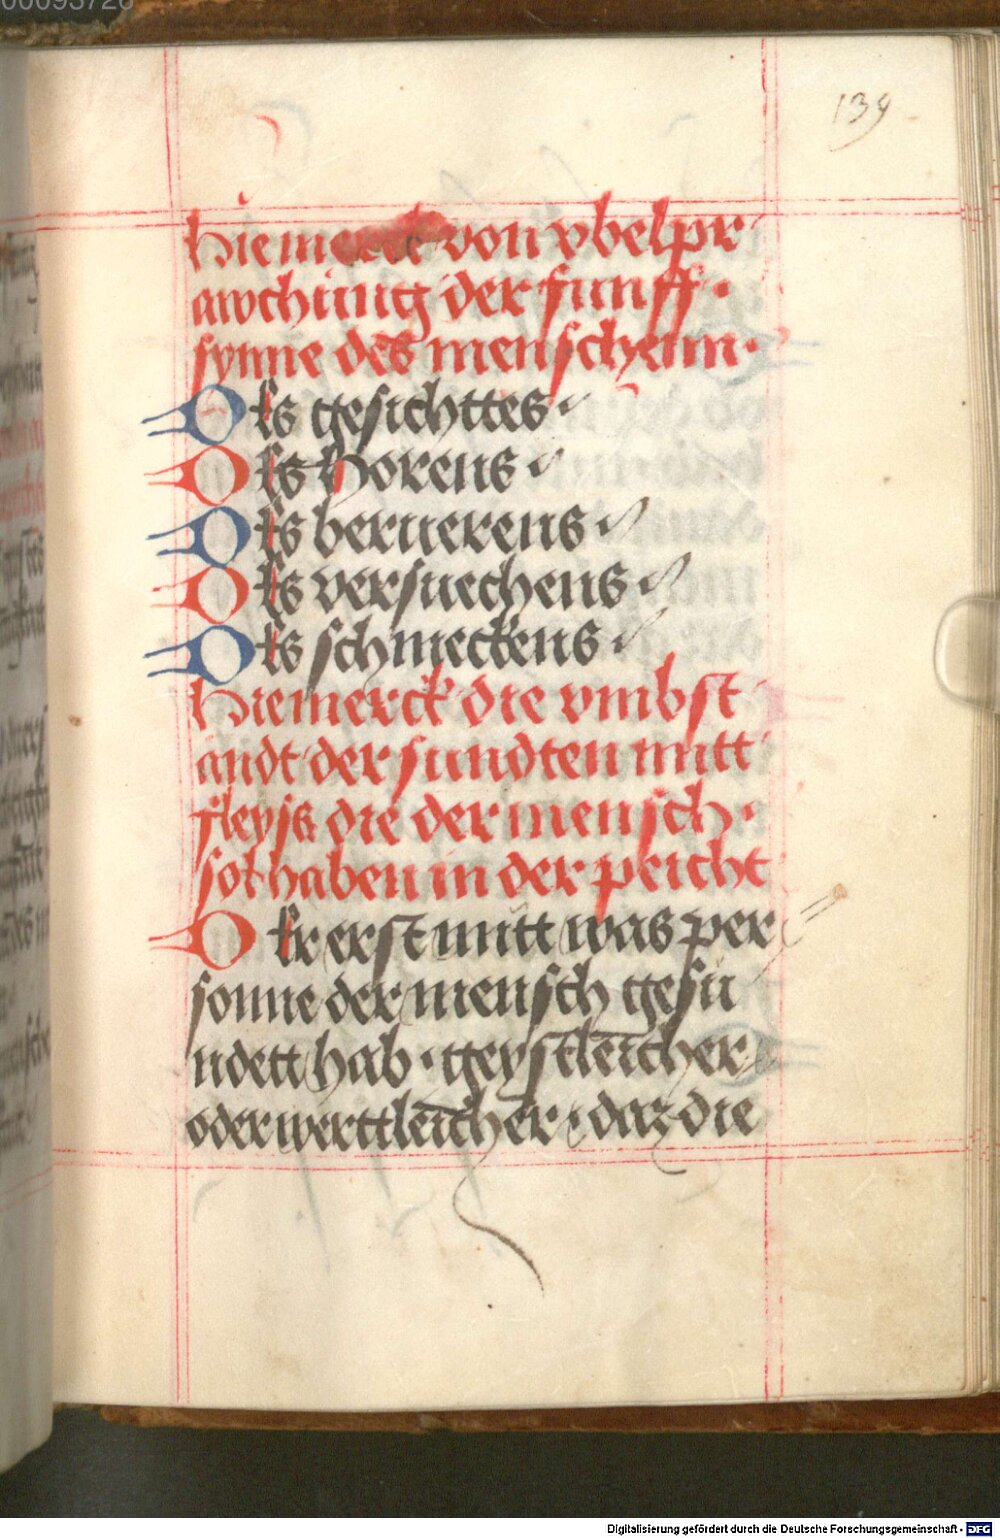 00093728
139
Hie merck von vbelpr
awchung der funff ·
synne des menschenn ·
Des gesichttes
Des Horens
Des beruerens
Des versuechens
Des schmeckens
Hie merck die vmbst
andt der sundten mitt
fleyss die der mensch ·
sol haben in der peicht
Der erst mitt was per
sonne der mensch gesu
ndett hab · geystleicher
oder werttleicher · daz die
Digitalisierung gefördert durch die Deutsche Forschungsgemeinschaft - DFG